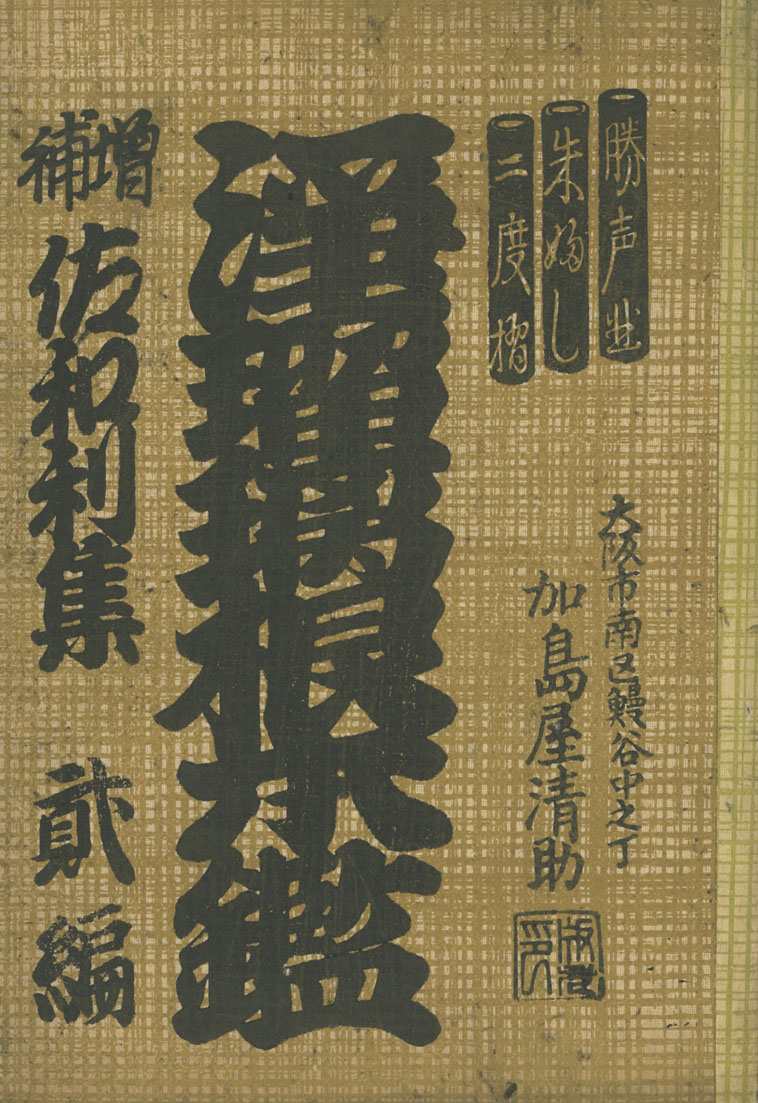 勝声並
朱婦し
二度摺
大阪市南区鰻谷中之丁
加島屋清助
浄瑠璃根本鑑
増補
佐和利集 貳編